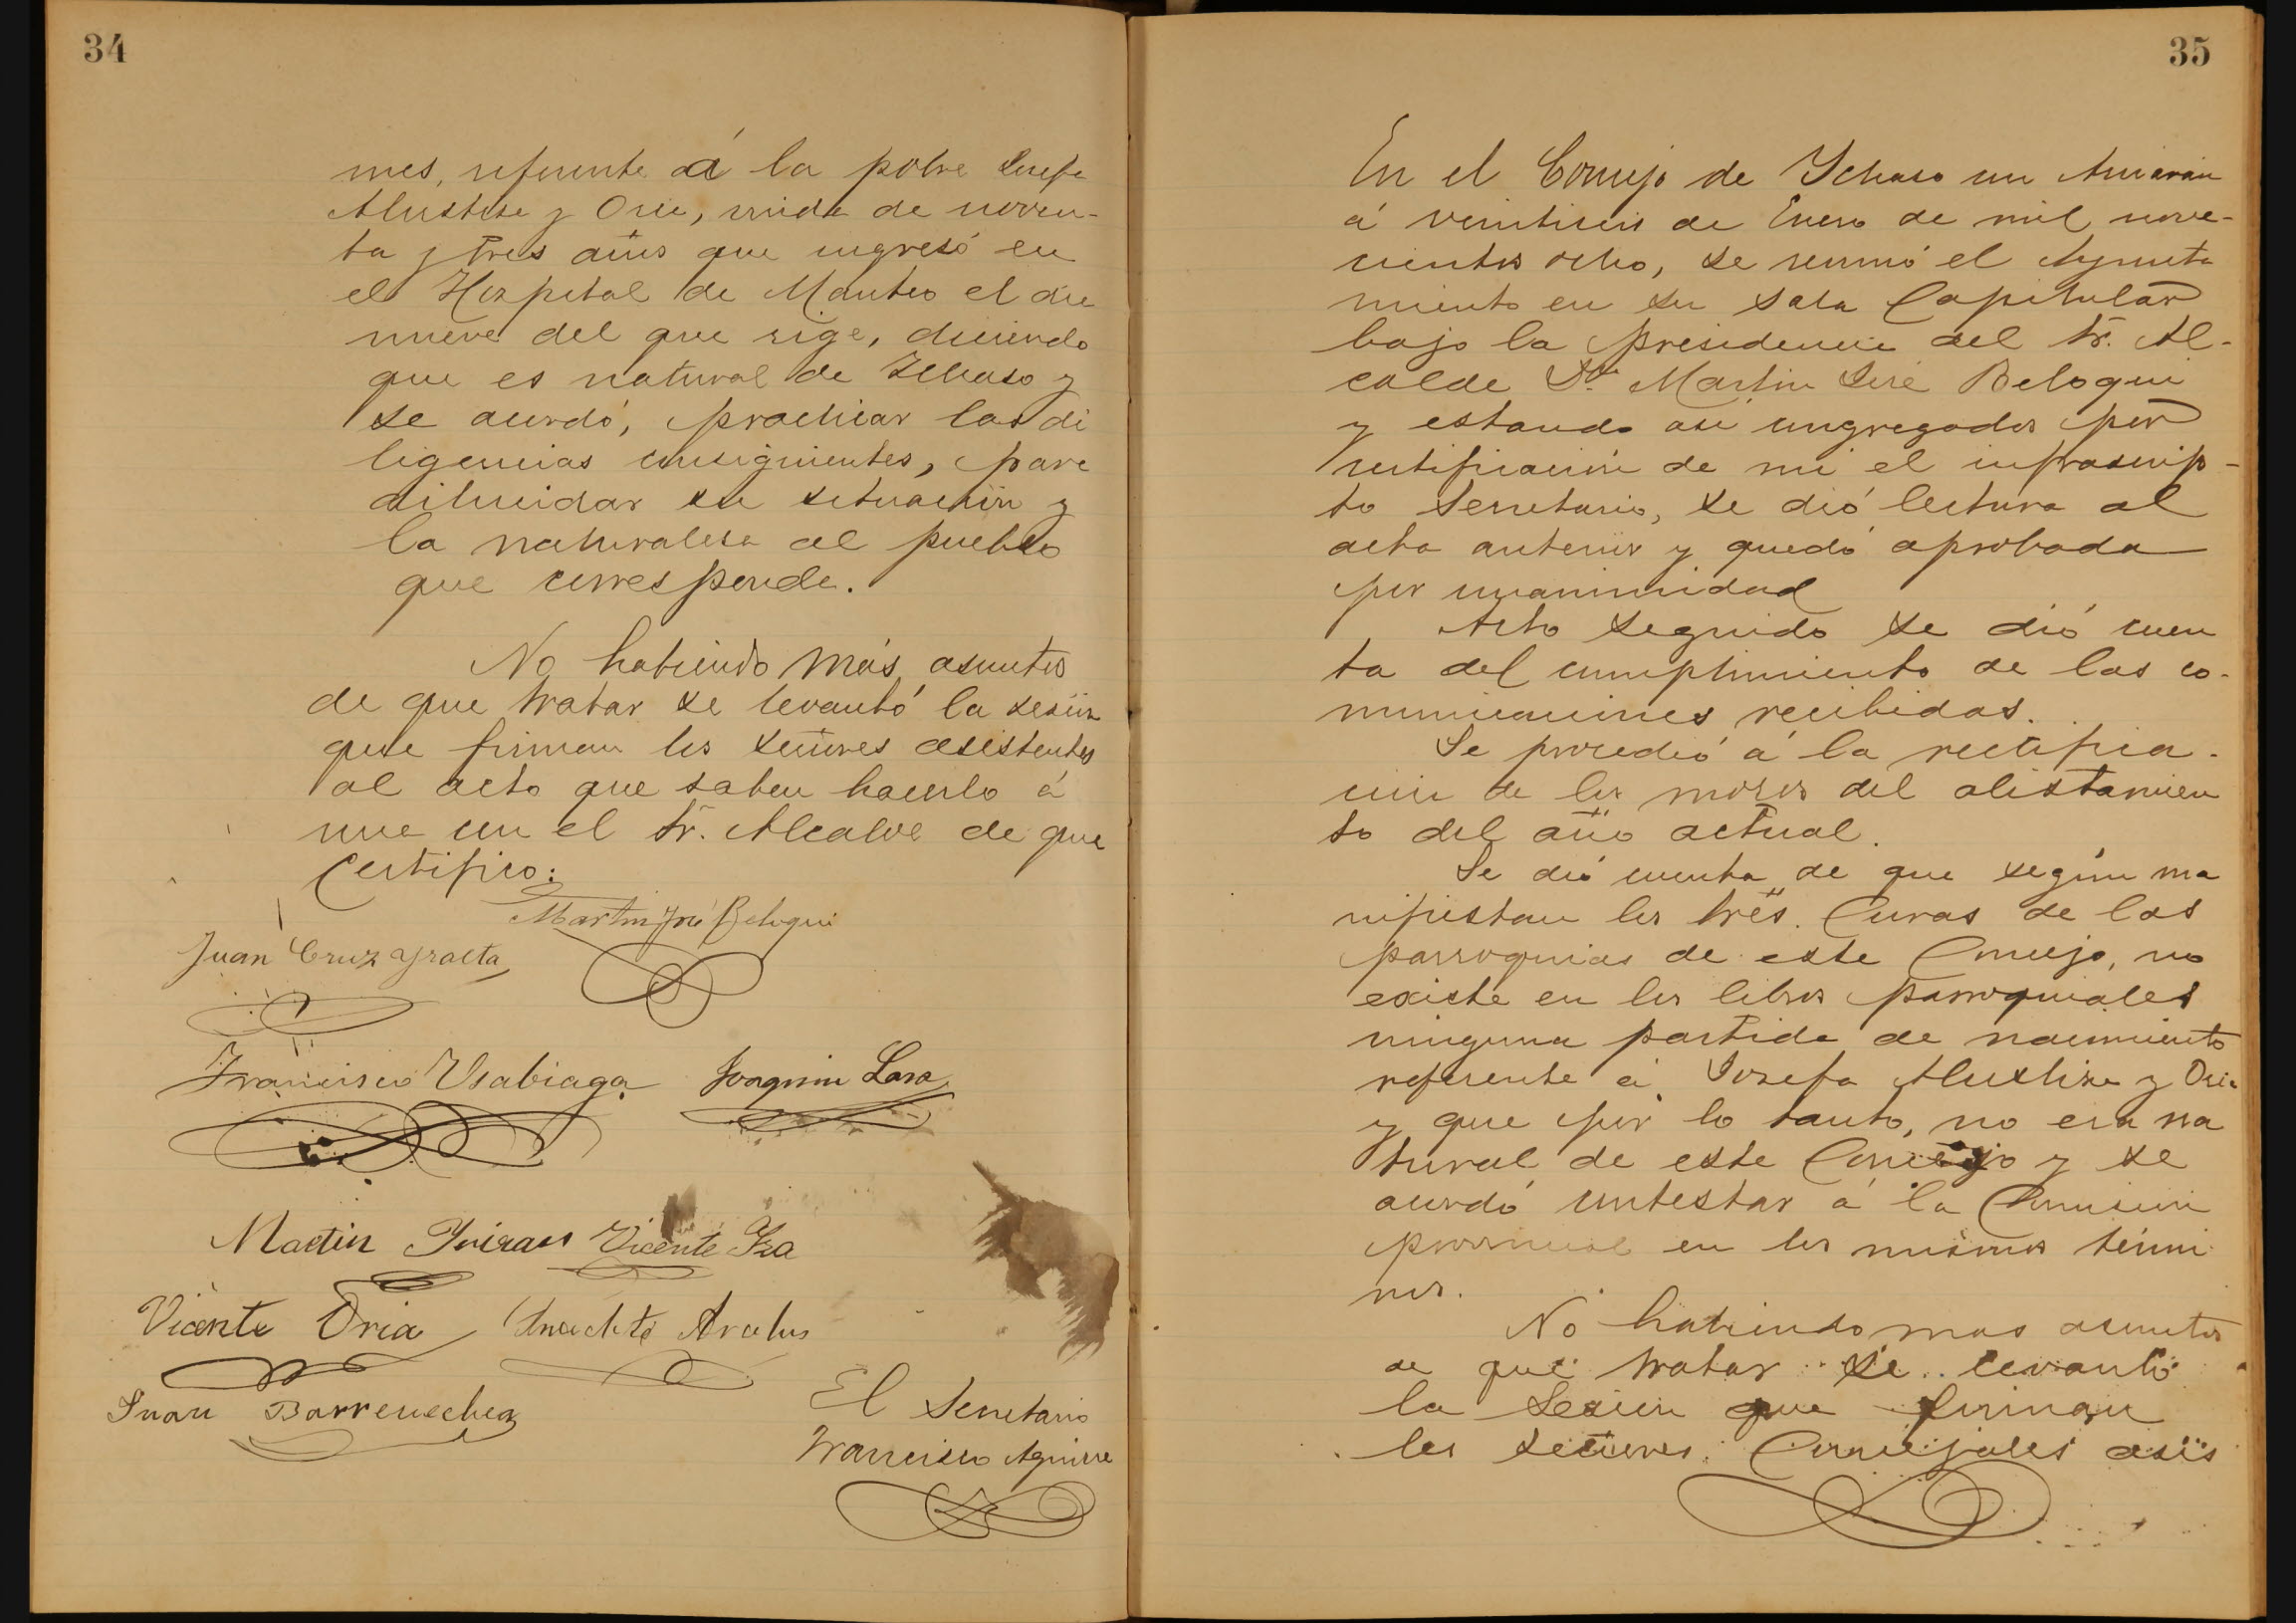 34
mes, referente á la pobre Josefa
Alustiza y Oria, viuda de noven-
ta y tres años que ingresó en
el Hospital de Manteo el día
nueve del que rige, diciendo
que es natural de Ichaso y
se acordó, practicar las di
ligencias consiguientes, para
dilucidar su situación y
la naturaleza al pueblo
que corresponde.
No habiendo más asuntos
de que tratar se levantó la sesión
que firman los señores asistentes
al acto que saben hacerlo á
una con el Sr. Alcalde de que
Certifico:
Martin José Beloqui
Juan Cruz Yraeta
Francisco Usabiaga Joaquin Lasa
Martin Vicente Yza
Vicente Oria
Juan Barrenechea
El Secretario
Francisco Aguirre
35
En el Concejo de Ichaso con Arriarán
á veintiseis de Enero de mil nove-
cientos ocho, se reunió el Ayunta
miento en su sala Capitular
bajo la presidencia del Sr. Al-
calde Dn Martin José Beloqui
y estando asi congregados por
certificación de mi el infrascrip-
to Secretario, se dió lectura al
acta anterior y quedó aprobada
por unanimidad
Acto seguido se dió cuen
ta del cumplimiento de las co-
municaciones recibidas.
Se procedió á la rectifica-
ción de los mozos del alistamien
to del año actual.
Se dió cuenta de que según ma
nifiestan los tres Curas de las
parroquias de este Concejo, no
existe en los libros parroquiales
ninguna partida de nacimiento
referente á Josefa Alustiza y Oria
y que por lo tanto, no era na
tural de este Concejo y se
acordó contestar á la Comision
provincial en los mismos térmi
nos.
No habiendo mas asuntos
de que tratar se levantó
la Sesión que firman
los señores Concejales asis